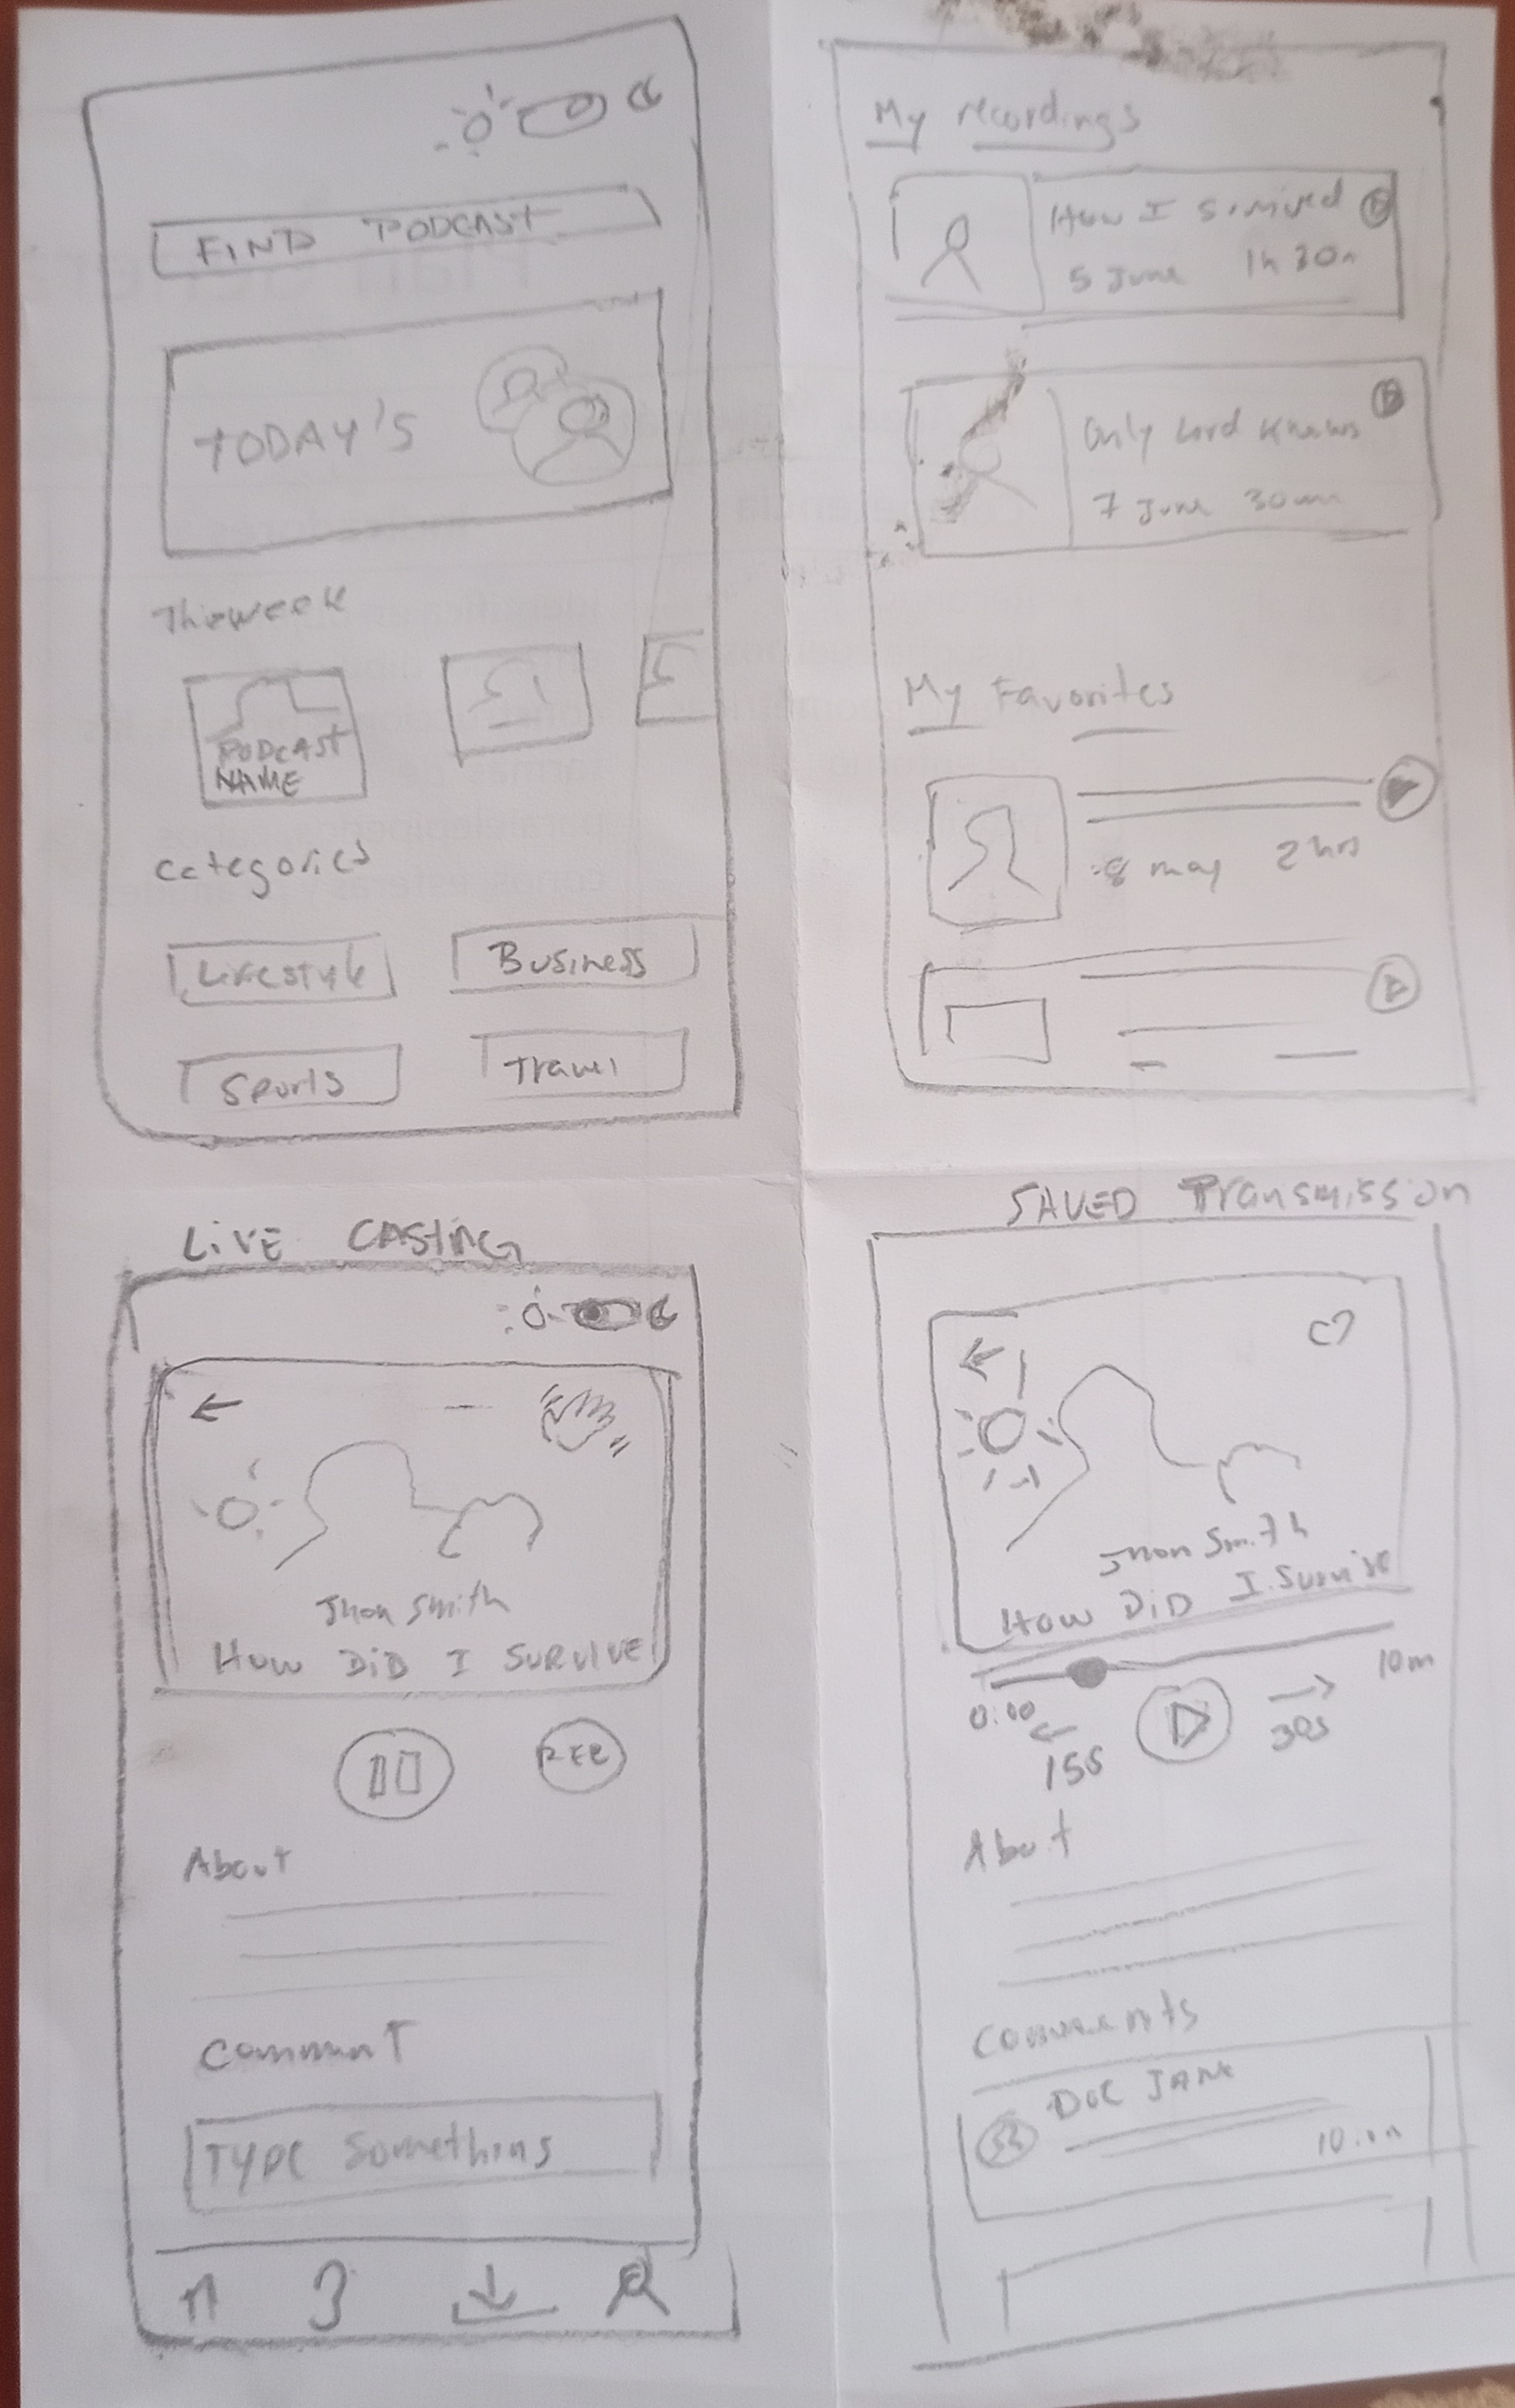 FIND PODCAST
TODAY'S
This week
PODCAST
NAME
Categories
Lifestyle
Business
Sports
Travel
My recordings
How I survived
5 June 1h 30m
Only Lord Knows
7 June 30min
My Favorites
8 may 2 hrs
LIVE CASTING
Jhon Smith
HOW DID I SURVIVE
REC
About
Comment
TYPE Something
SAVED Transmission
Jhon Smith
HOW DID I Survive
0:00
10m
15s
30s
About
Comments
DOE JANE